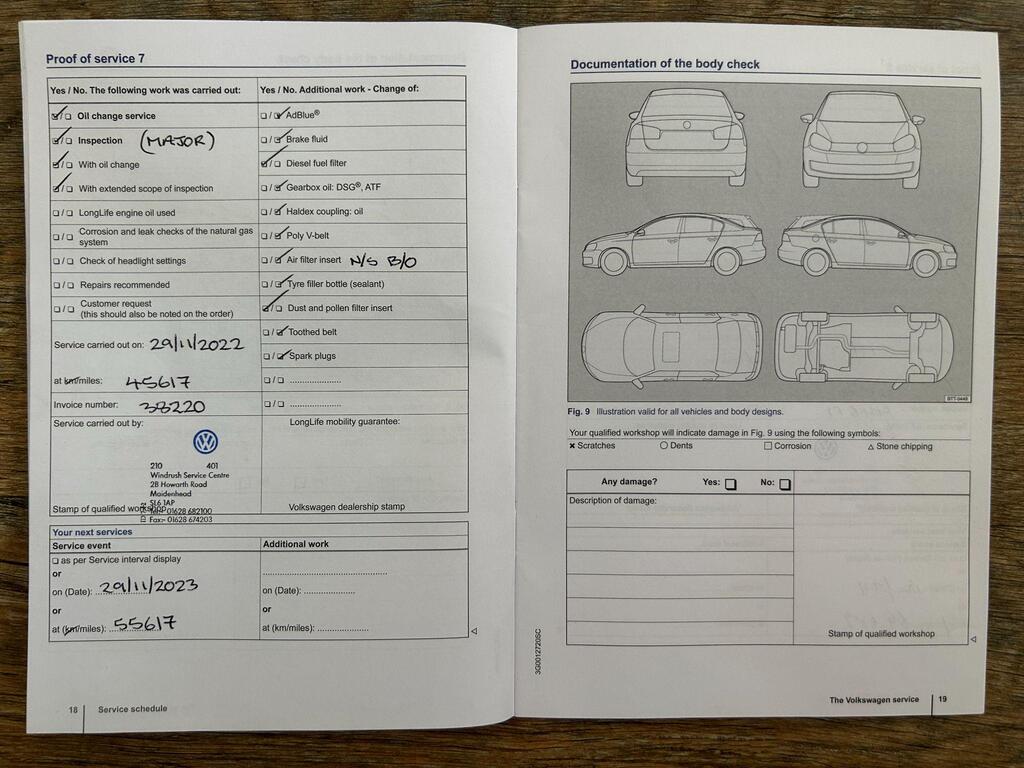 Proof of service 7
Yes / No. The following work was carried out:
Yes / No. Additional work - Change of:
☑/☐ Oil change service
☐/☑ AdBlue®
☑/☐ Inspection (MAJOR)
☐/☑ Brake fluid
☑/☐ With oil change
☑/☐ Diesel fuel filter
☑/☐ With extended scope of inspection
☐/☑ Gearbox oil: DSG®, ATF
☐/☐ LongLife engine oil used
☐/☑ Haldex coupling: oil
☐/☐ Corrosion and leak checks of the natural gas
system
☐/☑ Poly V-belt
☐/☐ Check of headlight settings
☐/☑ Air filter insert N/S B/O
☐/☐ Repairs recommended
☐/☑ Tyre filler bottle (sealant)
☐/☐ Customer request
(this should also be noted on the order)
☑/☐ Dust and pollen filter insert
Service carried out on: 29/11/2022
☐/☑ Toothed belt
☐/☑ Spark plugs
at km/miles: 45617
☐/☐ .....................
Invoice number: 38220
☐/☐ .....................
Service carried out by:
LongLife mobility guarantee:
210 401
Windrush Service Centre
2B Howarth Road
Maidenhead
SL6 1AP
Tel:- 01628 682100
Fax:- 01628 674203
Stamp of qualified workshop
Volkswagen dealership stamp
Your next services
Service event
Additional work
☐ as per Service interval display
or
on (Date): 29/11/2023
on (Date): .....................
or
or
at (km/miles): 55617
at (km/miles): .....................
18 Service schedule
Documentation of the body check
BTT-0449
Fig. 9 Illustration valid for all vehicles and body designs.
Your qualified workshop will indicate damage in Fig. 9 using the following symbols:
✖ Scratches ○ Dents ☐ Corrosion △ Stone chipping
Any damage? Yes: ☐ No: ☐
Description of damage:
Stamp of qualified workshop
3G0012720SC
The Volkswagen service 19